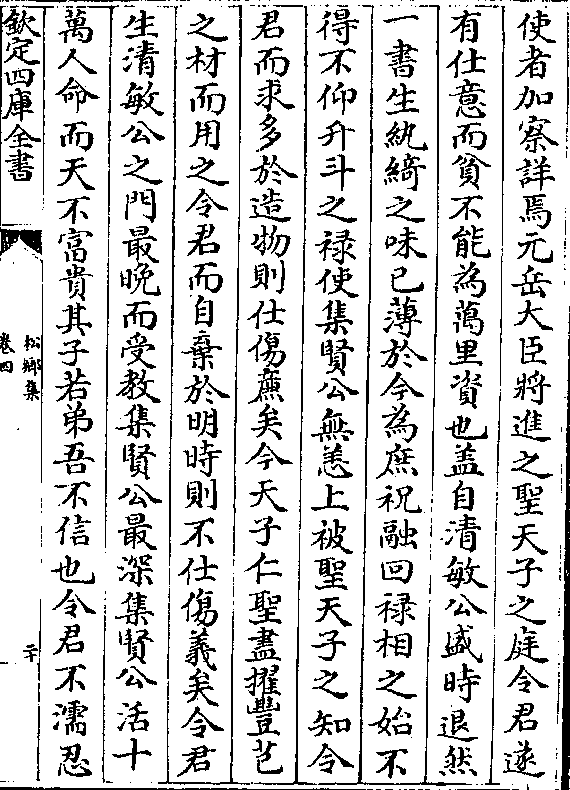 使者加察詳焉元岳大臣將進之聖天子之庭令君遂
有仕意而貧不能為萬里資也盖自清敏公盛時退然
一書生紈綺之味已薄於今為庶祝融回禄相之始不
得不仰升斗之禄使集賢公無恙上被聖天子之知令
君而求多於造物則仕傷㢘矣今天子仁聖盡擢豐芑
之材而用之令君而自棄於明時則不仕傷義矣令君
生清敏公之門最晩而受教集賢公最深集賢公活十
萬人命而天不富貴其子若弟吾不信也令君不濡忍
欽定四庫全書
松鄉集
卷四
二十